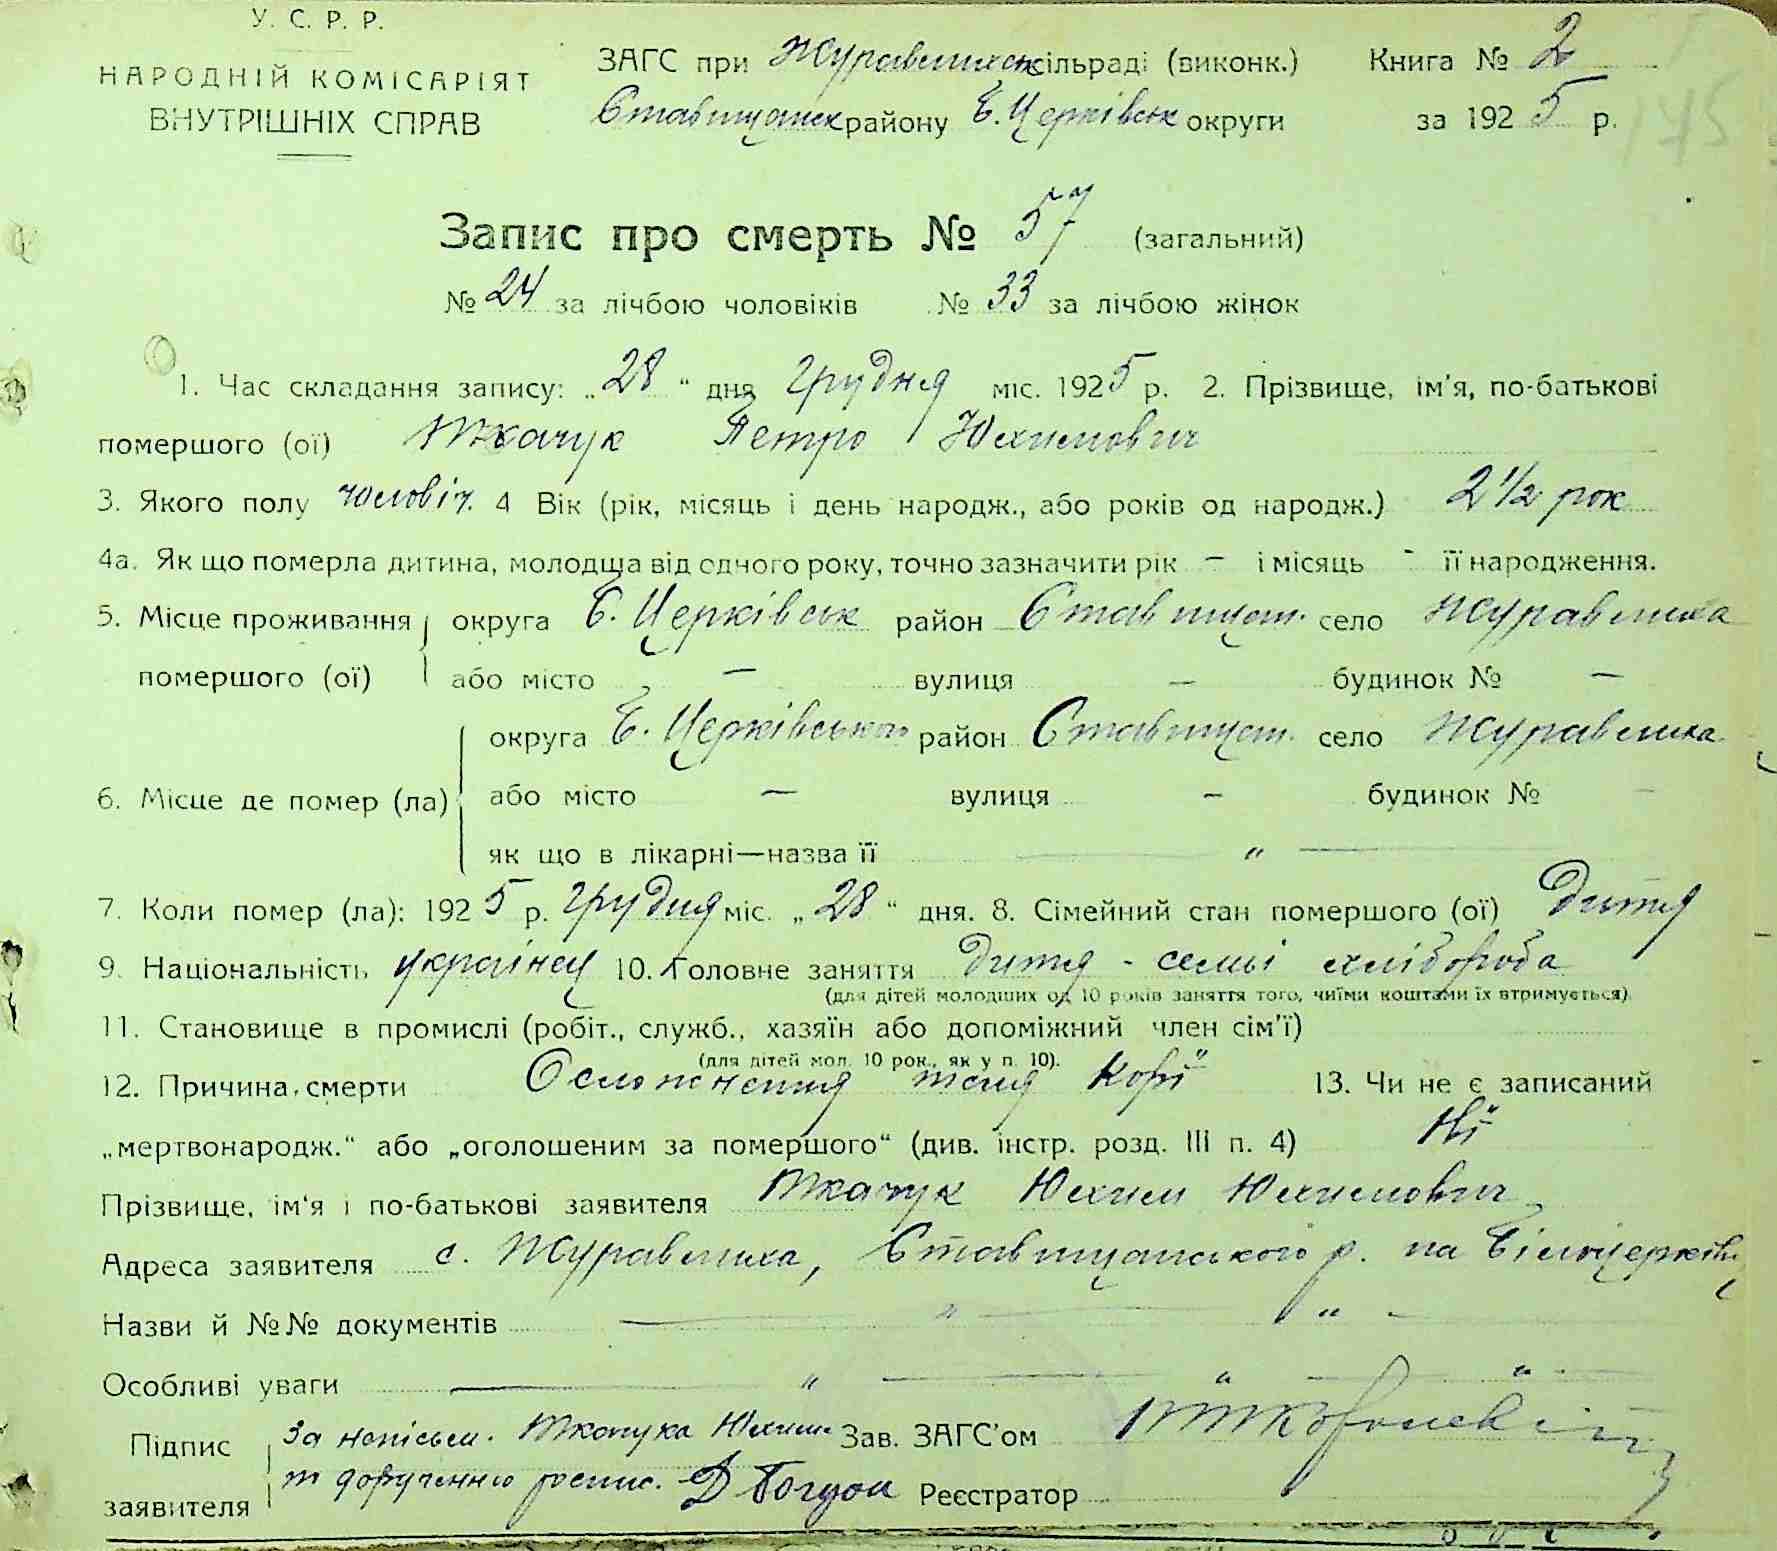 У. С. Р. Р.
НАРОДНІЙ КОМІСАРІЯТ
ВНУТРІШНІХ СПРАВ
ЗАГС при Журавлиха сільраді (виконк.) Книга № 2
Ставищанск району Б. Церківськ округи за 1925 р.
175
Запис про смерть № 57 (загальний)
№ 24 за лічбою чоловіків № 33 за лічбою жінок
1. Час складання запису: „28“ дня Грудня міс. 1925 р. 2. Прізвище, ім'я, по-батькові
помершого (ої) Ткачук Петро Юхимович
3. Якого полу чоловіч. 4 Вік (рік, місяць і день народж., або років од народж.) 2 1/2 рок
4а. Як що померла дитина, молодща від одного року, точно зазначити рік – і місяць - її народження.
5. Місце проживання округа Б. Церківськ район Ставищан. село Журавлиха
помершого (ої) або місто — вулиця — будинок № —
округа Б. Церківської район Ставищан. село Журавлиха
6. Місце де помер (ла) або місто — вулиця – будинок № –
як що в лікарні—назва її — „ —
7. Коли помер (ла): 1925 р. Грудня міс. „28“ дня. 8. Сімейний стан помершого (ої) Дитя
9. Національність українец 10. Головне заняття Дитя - семьі хлібороба
(для дітей молодших од 10 років заняття того, чиїми коштами їх втримується)
11. Становище в промислі (робіт., служб., хазяїн або допоміжний член сім'ї)
(для дітей мол. 10 рок., як у п. 10).
12. Причина смерти Осложнения корї 13. Чи не є записаний
„мертвонародж.“ або „оголошеним за помершого“ (див. інстр. розд. III п. 4) Ні
Прізвище, ім'я і по-батькові заявителя Ткачук Юхим Юхимович
Адреса заявителя с. Журавлиха, Ставищанського р. на Білоцерків
Назви й №№ документів — „ — „ -
Особливі уваги — „ — „ — „ —
Підпис За непісьм. Ткачука Юхим Зав. ЗАГС'ом
заявителя дорученню роспис. Д Богдан Реєстратор